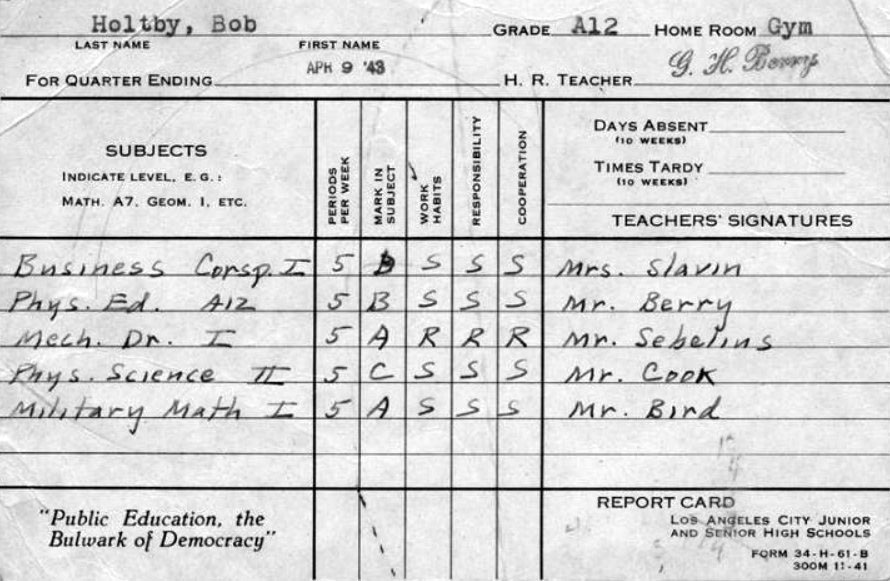 Holtby, Bob GRADE A12 HOME ROOM Gym
LAST NAME FIRST NAME
FOR QUARTER ENDING APR 9 '43 H. R. TEACHER G. H. Berry
SUBJECTS
INDICATE LEVEL, E.G.:
MATH. A7, GEOM. I, ETC.
PERIODS PER WEEK
MARK IN SUBJECT
WORK HABITS
RESPONSIBILITY
COOPERATION
DAYS ABSENT
(10 WEEKS)
TIMES TARDY
(10 WEEKS)
TEACHERS' SIGNATURES
Business Corsp. I 5 B S S S Mrs. Slavin
Phys. Ed. A12 5 B S S S Mr. Berry
Mech. Dr. I 5 A R R R Mr. Sebelins
Phys. Science II 5 C S S S Mr. Cook
Military Math I 5 A S S S Mr. Bird
"Public Education, the
Bulwark of Democracy"
REPORT CARD
LOS ANGELES CITY JUNIOR
AND SENIOR HIGH SCHOOLS
FORM 34-H-61-B
300M 11-41